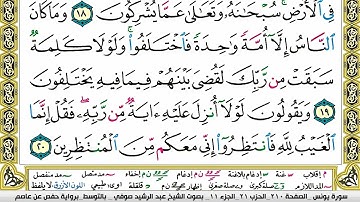 فِي ٱلْأَرْضِ ۚ سُبْحَـٰنَهُۥ وَتَعَـٰلَىٰ عَمَّا يُشْرِكُونَ ١٨ وَمَا كَانَ
ٱلنَّاسُ إِلَّآ أُمَّةً وَٰحِدَةً فَٱخْتَلَفُوا۟ ۚ وَلَوْلَا كَلِمَةٌ
سَبَقَتْ مِن رَّبِّكَ لَقُضِيَ بَيْنَهُمْ فِيمَا فِيهِ يَخْتَلِفُونَ
١٩ وَيَقُولُونَ لَوْلَآ أُنزِلَ عَلَيْهِ ءَايَةٌ مِّن رَّبِّهِۦ ۖ فَقُلْ إِنَّمَا
ٱلْغَيْبُ لِلَّهِ فَٱنتَظِرُوٓا۟ إِنِّى مَعَكُم مِّنَ ٱلْمُنتَظِرِينَ ٢٠
سورة يونس الصفحة ٢١٠ الحزب ٢١ الجزء ١١ بصوت الشيخ عبد الرشيد صوفي - بالتوسط برواية حفص عن عاصم